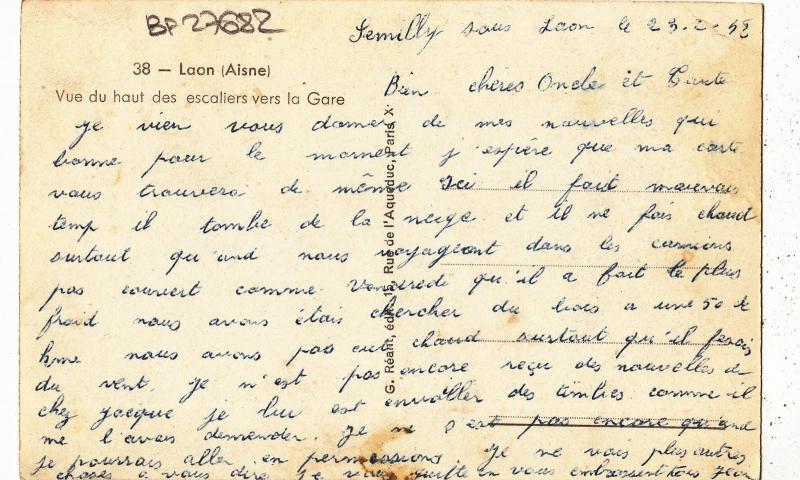 BP 27682
Semilly sous Laon le 23.2.58
38 — Laon (Aisne)
Vue du haut des escaliers vers la Gare
Bien chères Oncle et Tante
je vien vous donner de mes nouvelles qui
bonne pour le moment j'espère que ma carte
vous trouvera de même Ici il fait mauvais
temp il tombe de la neige et il ne fais chaud
surtout qu'and nous voyageont dans les camions
pas couvert comme Vendrede qu'il a fait le plus
froid nous avons étais chercher du bois a une 50 de
kme nous avons pas eut chaud surtout qu'il fesais
du vent. je n'est pas encore reçu des nouvelles de
chez jacque je lui est envoller des timbres comme il
me l'avais demender. je ne s'est pas encore qu'and
je pourrais aller en permessions je ne vais plus autres
choses a vous dire je vous quitte en vous embrassent tous
G. Réant, édit. 15, Rue de l'Aqueduc, Paris X